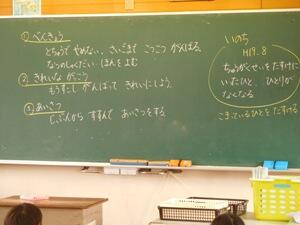 ① べんきょう
とちゅうで やめない、さいごまで こつこつ がんばる。
なつの しゅくだい ほんをよむ
② きれいな がっこう
もうすこし がんばって きれいにしよう。
③ あいさつ
じぶんから すすんで あいさつをする。
いのち
H19.8
ちゅうがくせいを たすけに
いったひと、 ひとりが
なくなる
こまっているひとを たすける